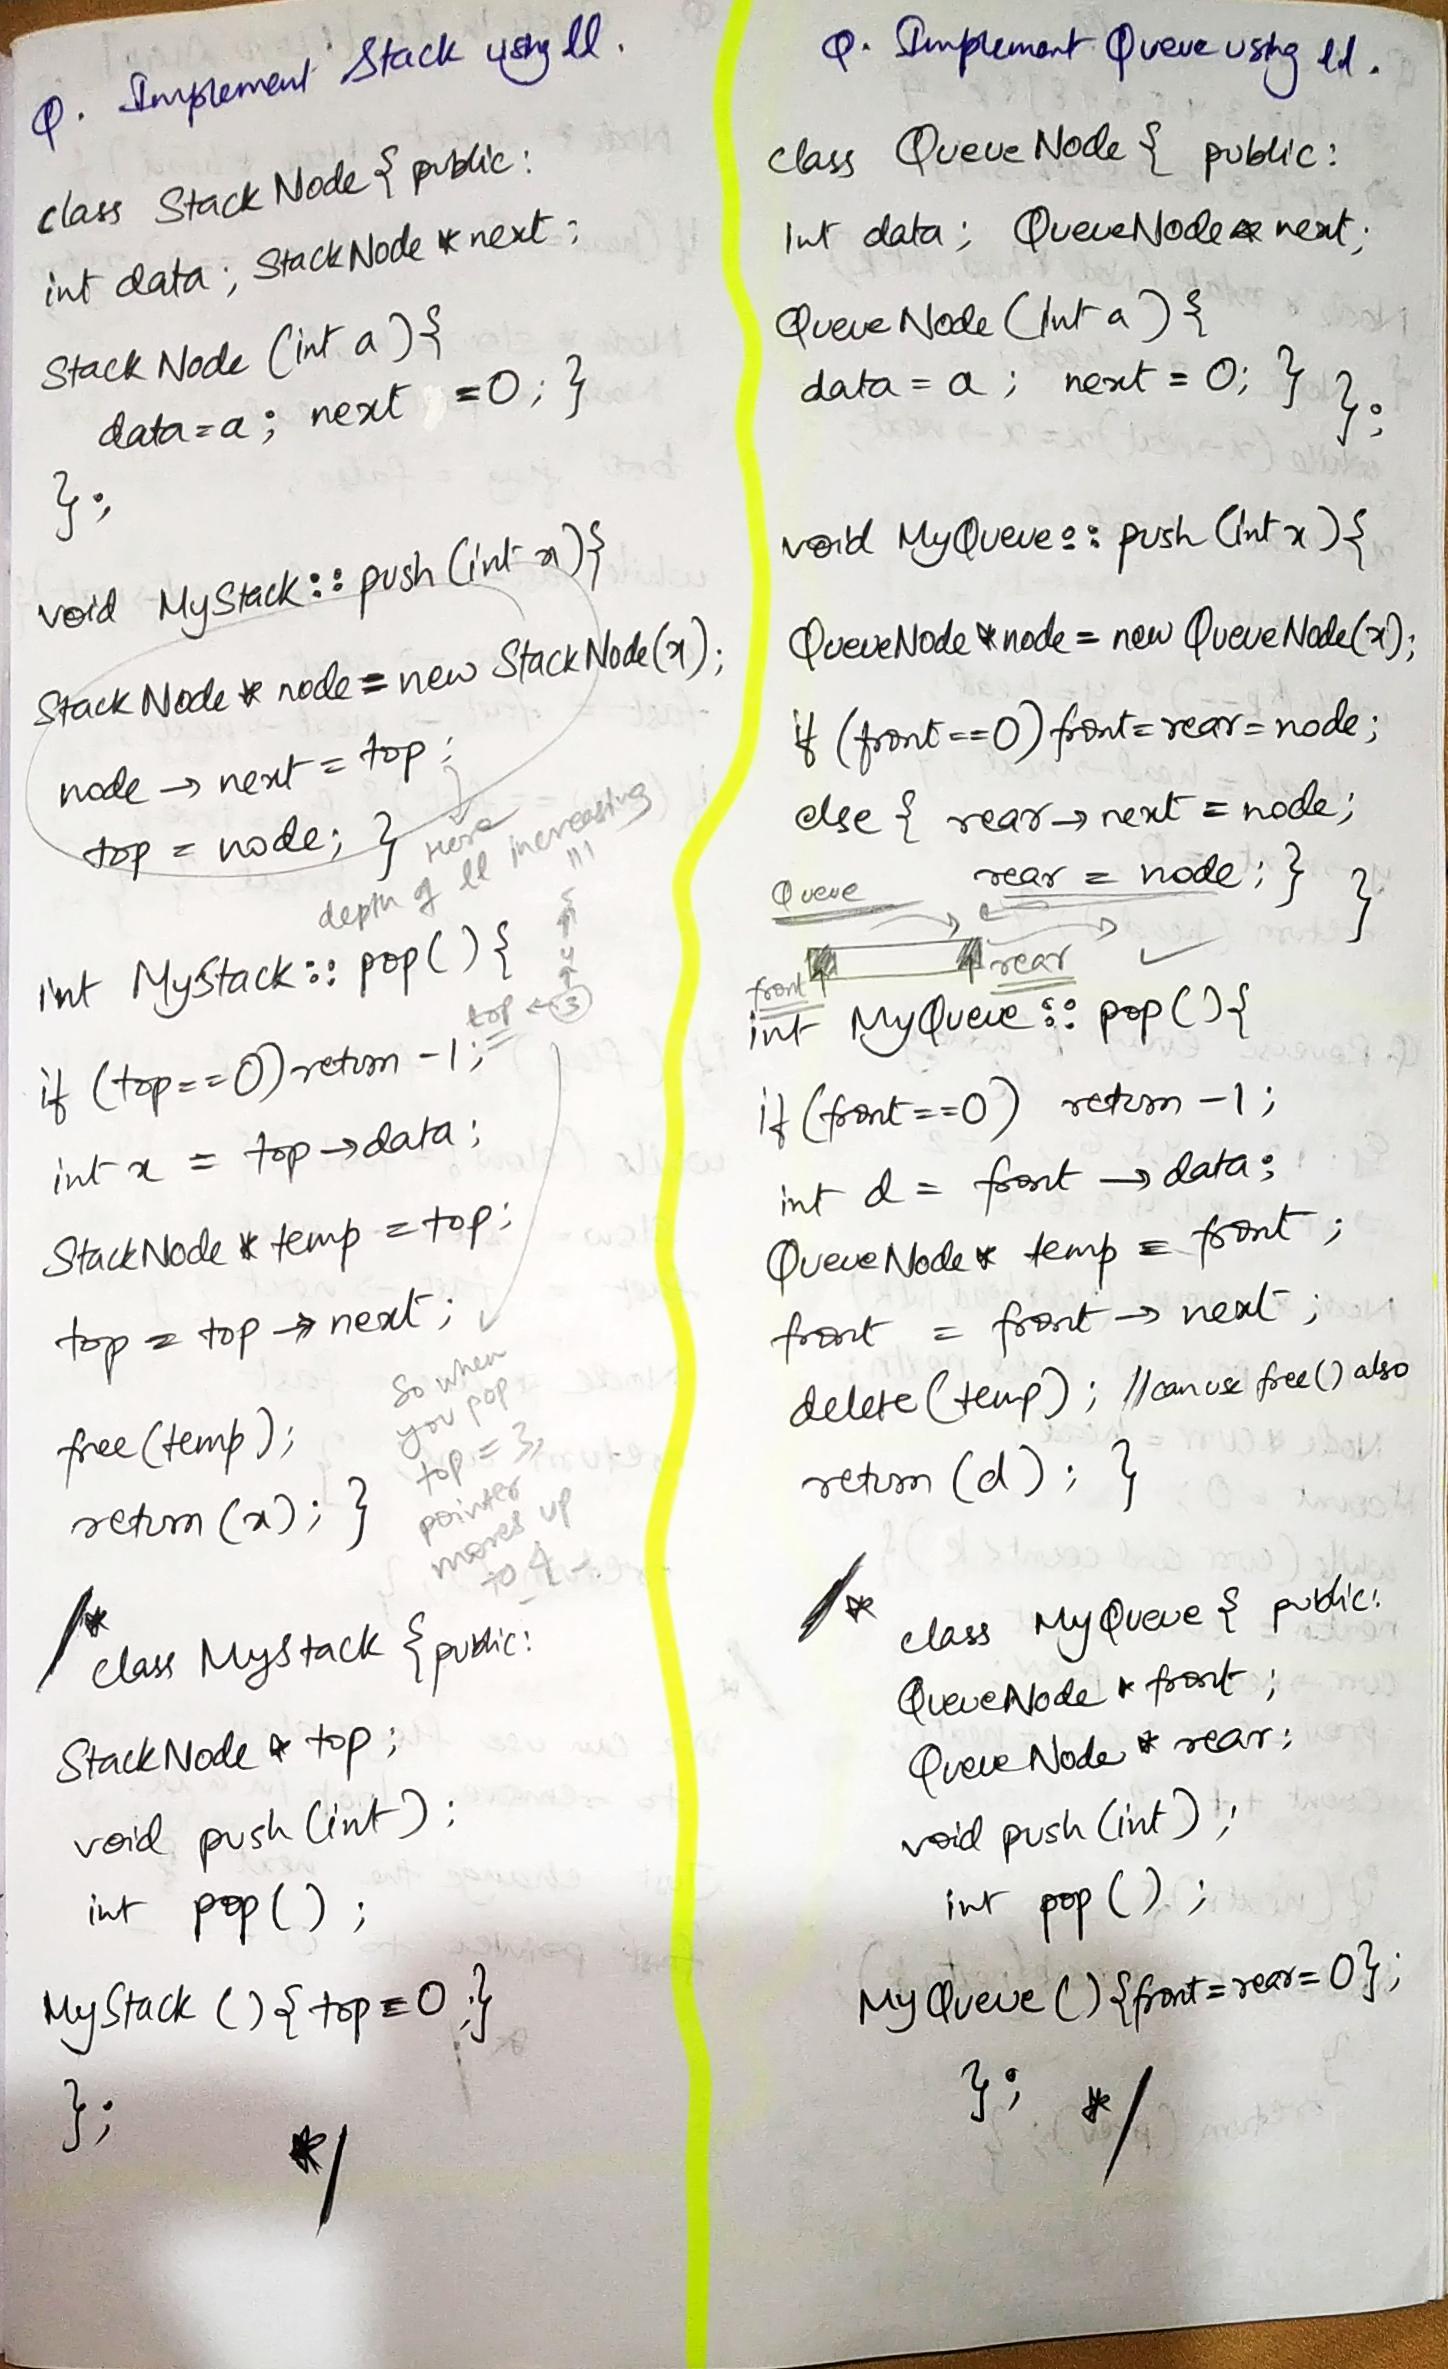 Q. Implement Stack using ll.
class StackNode { public:
int data; StackNode * next;
StackNode (int a) {
data=a; next =0; }
};
void MyStack :: push (int x) {
StackNode * node = new StackNode(x);
node → next = top;
top = node; }
Here
depth of ll increasing
int MyStack :: pop() {
5
↑
4
↑
top ← 3
if (top==0) return -1;
int x = top → data;
StackNode * temp = top;
top = top → next;
free(temp);
return (x); }
So when
you pop
top = 3,
pointer
moves up
to 4.
/*
class MyStack { public:
StackNode * top;
void push (int);
int pop();
MyStack () { top = 0 ;}
};
*/
Q. Implement Queue using ll.
class QueueNode { public:
int data; QueueNode * next;
QueueNode (int a) {
data = a; next = 0; } };
void MyQueue :: push (int x) {
QueueNode * node = new QueueNode(x);
if (front==0) front=rear=node;
else { rear → next = node;
rear = node; } }
Queue
front rear
int MyQueue :: pop() {
if (front==0) return -1;
int d = front → data;
QueueNode * temp = front;
front = front → next;
delete(temp); //can use free() also
return (d); }
/*
class MyQueue { public:
QueueNode * front;
QueueNode * rear;
void push (int);
int pop();
MyQueue () {front=rear=0};
};
*/